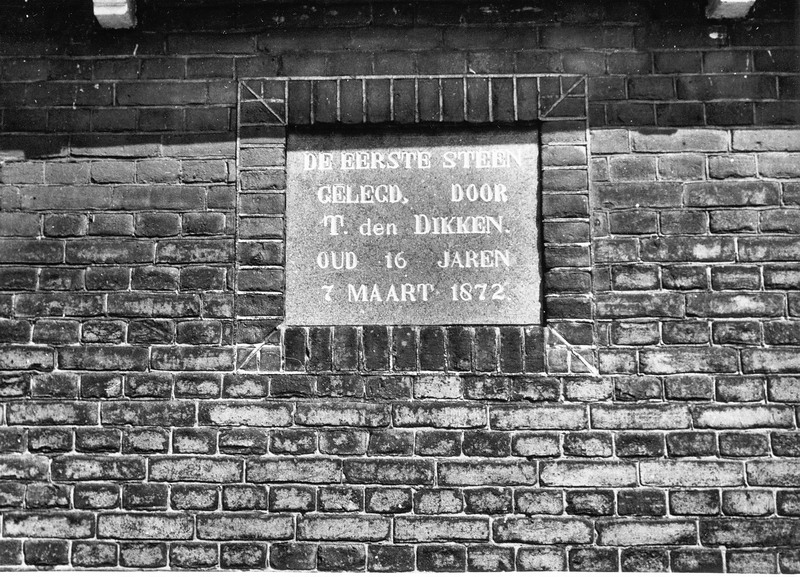 DE EERSTE STEEN
GELEGD, DOOR
T. den DIKKEN.
OUD 16 JAREN
7 MAART 1872.